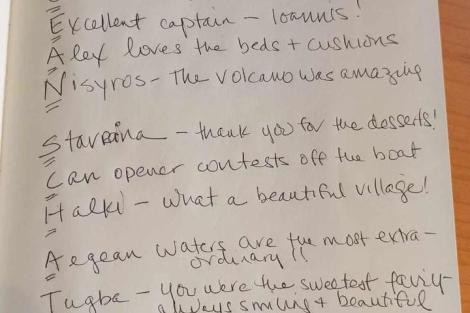 Excellent captain – Ioannis!
Alex loves the beds + cushions
Nisyros – The volcano was amazing
– thank you for the desserts!
Can opener contests off the boat
Halki – what a beautiful village!
Aegean waters are the most extra-
ordinary!!
Tugba – you were the sweetest fairy –
always smiling + beautiful